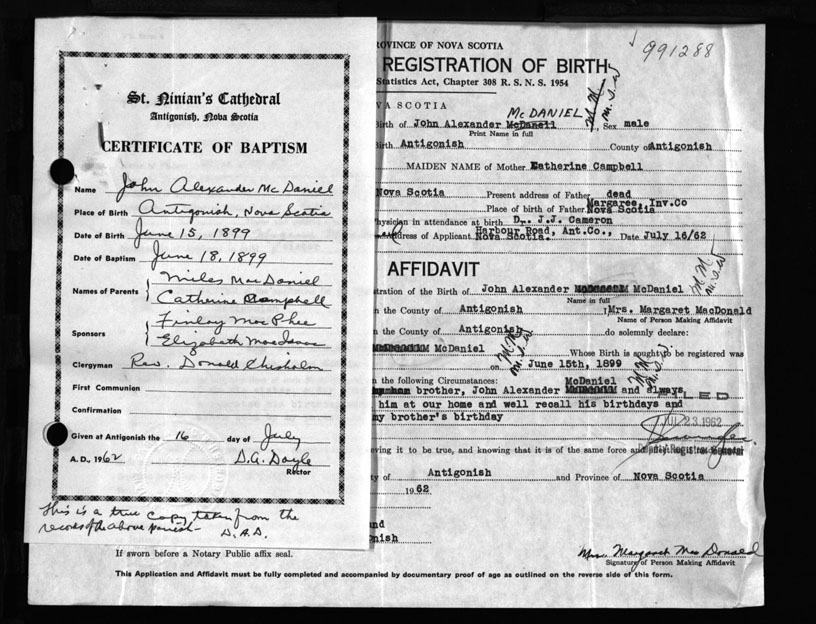 St. Ninian's Cathedral
Antigonish, Nova Scotia
CERTIFICATE OF BAPTISM
Name John Alexander McDaniel
Place of Birth Antigonish, Nova Scotia
Date of Birth June 15, 1899
Date of Baptism June 18, 1899
Names of Parents Miles MacDaniel
Catherine Campbell
Sponsors Finlay MacPhee
Elizabeth MacIsaac
Clergyman Rev. Donald Chisholm
First Communion
Confirmation
Given at Antigonish the 16 day of July
A. D., 1962 D.A. Doyle
Rector
This is a true copy taken from the
records of the above parish-
D.A.D.
991288
PROVINCE OF NOVA SCOTIA
REGISTRATION OF BIRTH
Statistics Act, Chapter 308 R. S. N. S. 1954
VA SCOTIA
McDANIEL
M.M.
M.S.W
Birth of John Alexander Sex male
Print Name in full
Birth Antigonish County of Antigonish
MAIDEN NAME of Mother Catherine Campbell
Nova Scotia Present address of Father dead
Margaree, Inv.Co
Place of birth of Father Nova Scotia
Physician in attendance at birth D.. J.J. Cameron
Address of Applicant Harbour Road, Ant.Co.,
Nova Scotia. Date July 16/62
AFFIDAVIT
stration of the Birth of John Alexander McDaniel
Name in full
M.M.
M.S.W
n the County of Antigonish I Mrs. Margaret MacDonald
Name of Person Making Affidavit
n the County of Antigonish do solemnly declare:
McDaniel Whose Birth is sought to be registered was
M.M.
M.S.W.
on June 15th, 1899
M.M.
M.S.W.
n the following Circumstances: McDaniel
brother, John Alexander and always
FILED
him at our home and well recall his birthdays and
my brother's birthday
JUL 23 1962
eving it to be true, and knowing that it is of the same force and
Deputy Registrar General
ty of Antigonish and Province of Nova Scotia
1962
and
nish
If sworn before a Notary Public affix seal.
Mrs. Margaret MacDonald
Signature of Person Making Affidavit
This Application and Affidavit must be fully completed and accompanied by documentary proof of age as outlined on the reverse side of this form.